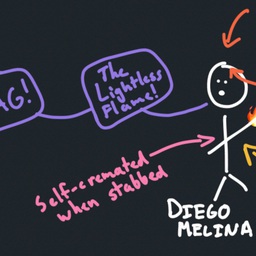 AG!
The
Lightless
Flame!
Self-cremated
when stabbed
DIEGO
MELINA